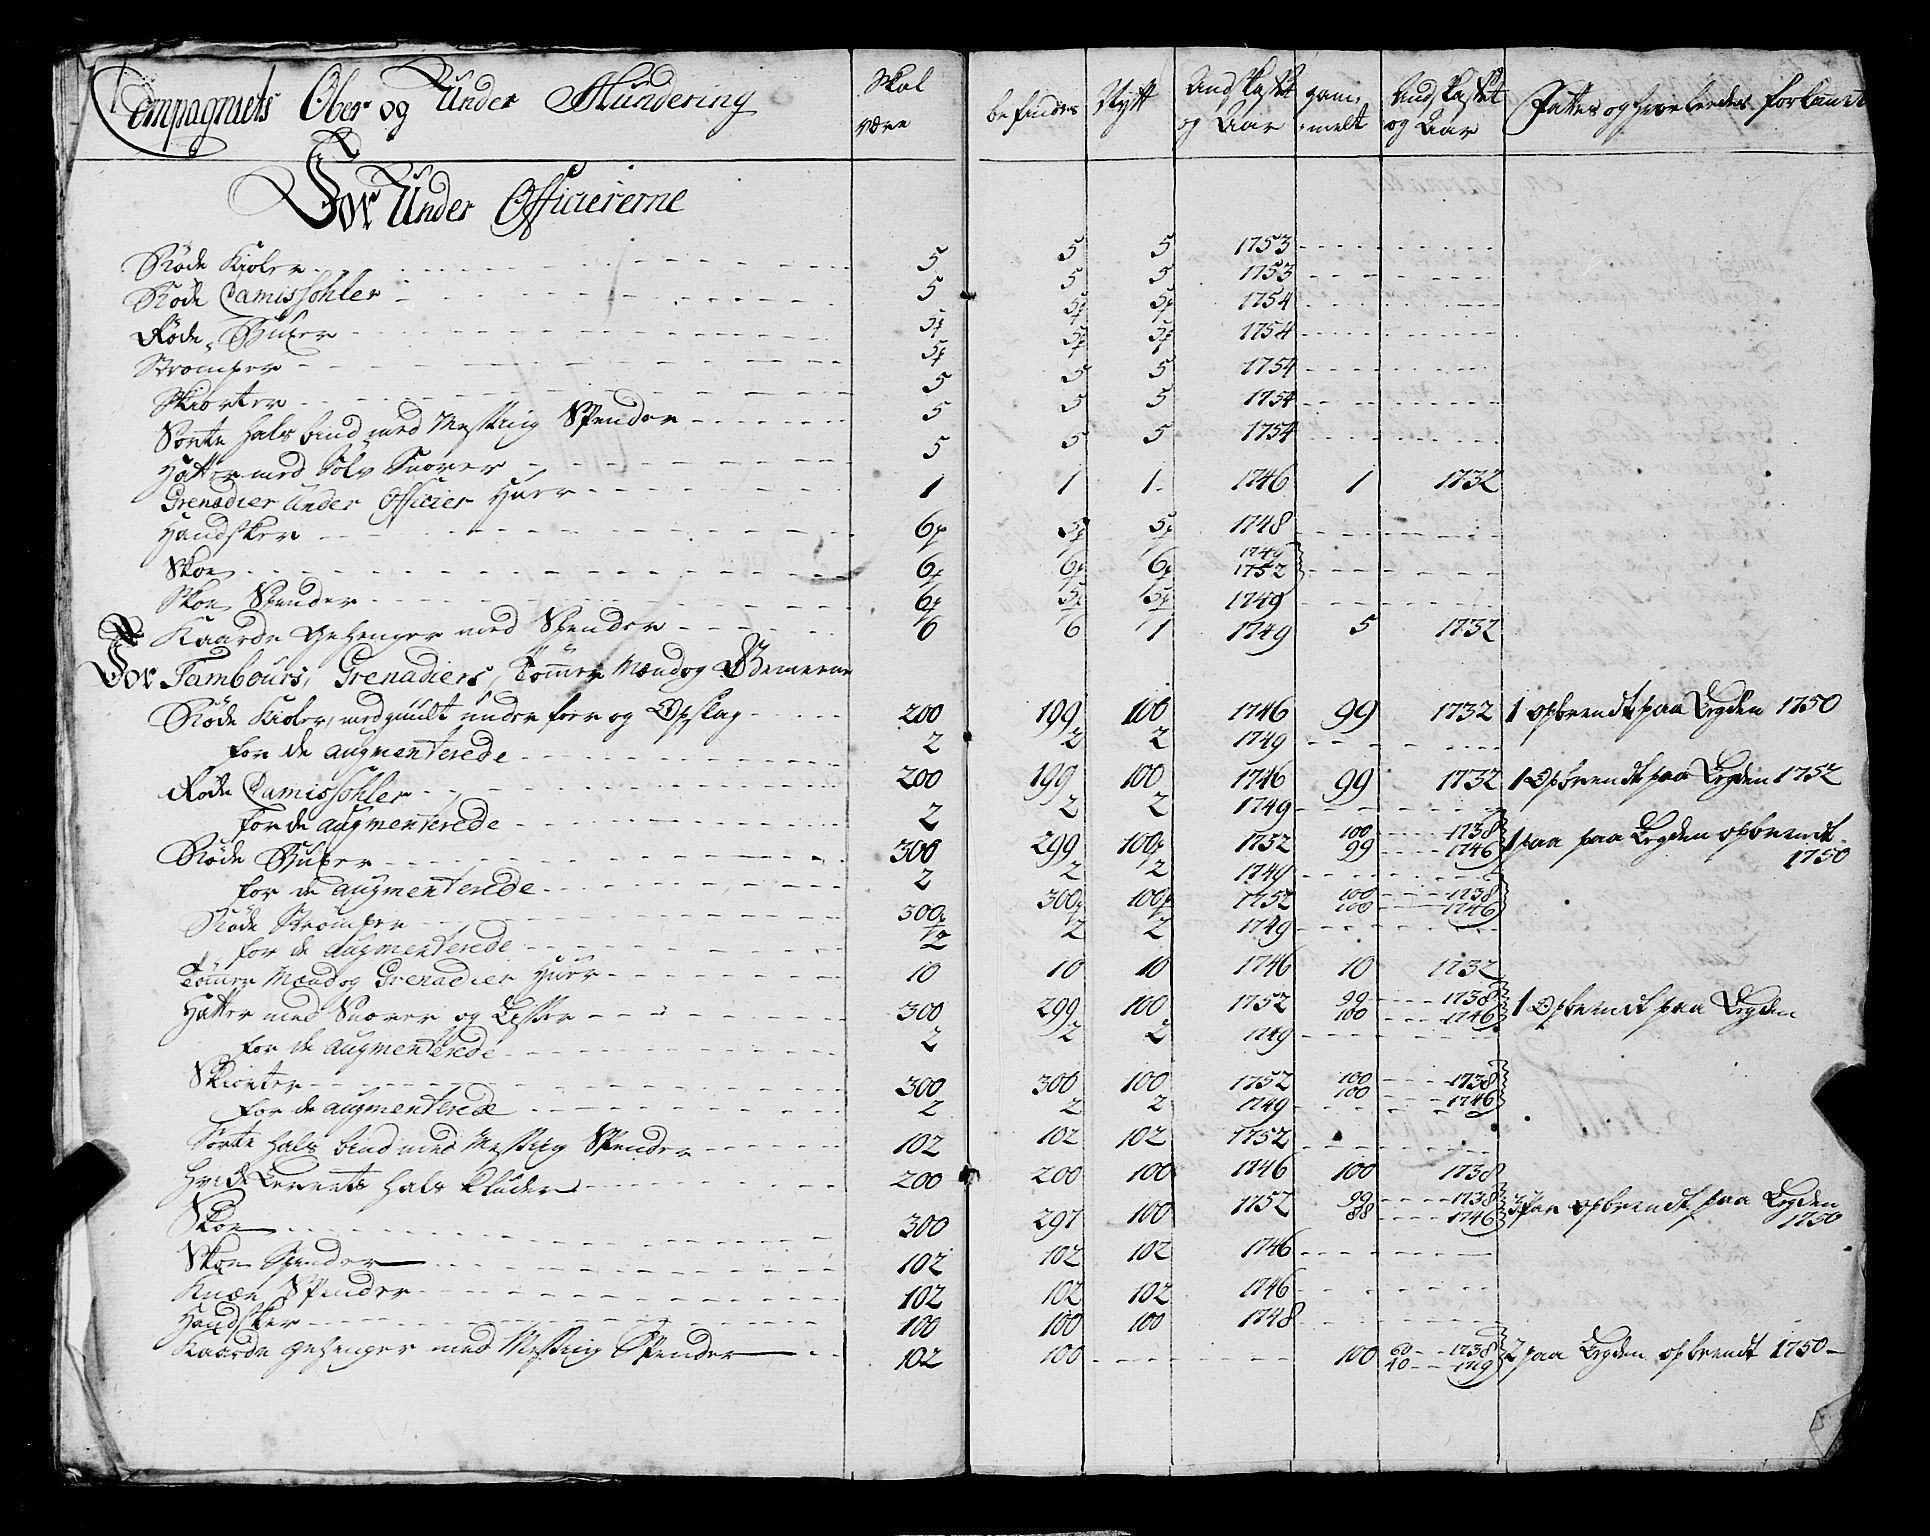 Compagniets Ober og Under Mundering | Skal være | befindes | Nytt | Andskaffet og Aar | gammelt | Andskaffet og Aar | Fattes og hvorleedes forkommet
For Under Officiererne
Røde Kioler | 5 | 5 | 5 | 1753
Røde Camissohler | 5 | 5 | 5 | 1753
Røde Buxer | 5p | 5p | 5p | 1754
Strømper | 5p | 5p | 5p | 1754
Skiorter | 5 | 5 | 5 | 1754
Sorte Hals bind med Messing Spender | 5 | 5 | 5 | 1754
Hatter med Sølv Snorer | 5 | 5 | 5 | 1754
Grenadier Under Officier Huer | 1 | 1 | 1 | 1746 | 1 | 1732
Handsker | 6p | 5p | 5p | 1748
Skoe | 6p | 6p | 6p | 1749 1752
Skoe Spender | 6p | 5p | 5p | 1749
Kaarde Gehenger med Spender | 6 | 6 | 1 | 1749 | 5 | 1732
For Tambours, Grenadiers, Tømmer Mænd og Gemeerne
Røde Kioler, med guult under foer og Opslag | 200 | 199 | 100 | 1746 | 99 | 1732 | 1 opbrendt paa Legden 1750
for de augmenterede | 2 | 2 | 2 | 1749
Røde Camissohler | 200 | 199 | 100 | 1746 | 99 | 1732 | 1 Opbrendt paa Legden 1752
for de augmenterede | 2 | 2 | 2 | 1749
Røde Buxer | 300 | 299 | 100p | 1752 | 100 99 | 1738 1746 | 1 paa Legden opbrendt 1750
for de augmenterede | 2 | 2 | 2 | 1749
Røde Strømper | 300p | 300p | 100p | 1752 | 100 100 | 1738 1746
for de augmenterede | 2 | 2 | 2 | 1749
Tømer Mænd og Grenadier Huer | 10 | 10 | 10 | 1746 | 10 | 1732
Hatter med Snorer og Lisser | 300 | 299 | 100 | 1752 | 99 100 | 1738 1746 | 1 Opbrendt paa Legden
for de augmenterede | 2 | 2 | 2 | 1749
Skiorter | 300 | 300 | 100 | 1752 | 100 100 | 1738 1746
for de augmenterede | 2 | 2 | 2 | 1749
Sorte Hals bind med Messing Spender | 102 | 102 | 102 | 1752
Hvide Lerrets Hals Kluder | 200 | 200 | 100 | 1746 | 100 | 1738
Skoe | 300 | 297 | 100 | 1752 | 99 88 | 1738 1746 | 3 par opbrendt paa Legden 1750
Skoe Spender | 102 | 102 | 102 | 1746
Knæe Spender | 102 | 102 | 102 | 1746
Handsker | 100 | 100 | 100 | 1748
Kaarde Gehenger med Messing Spender | 102 | 100 | 100 | 60 1738 40 1719 | 2 paa Legden opbrendt 1750